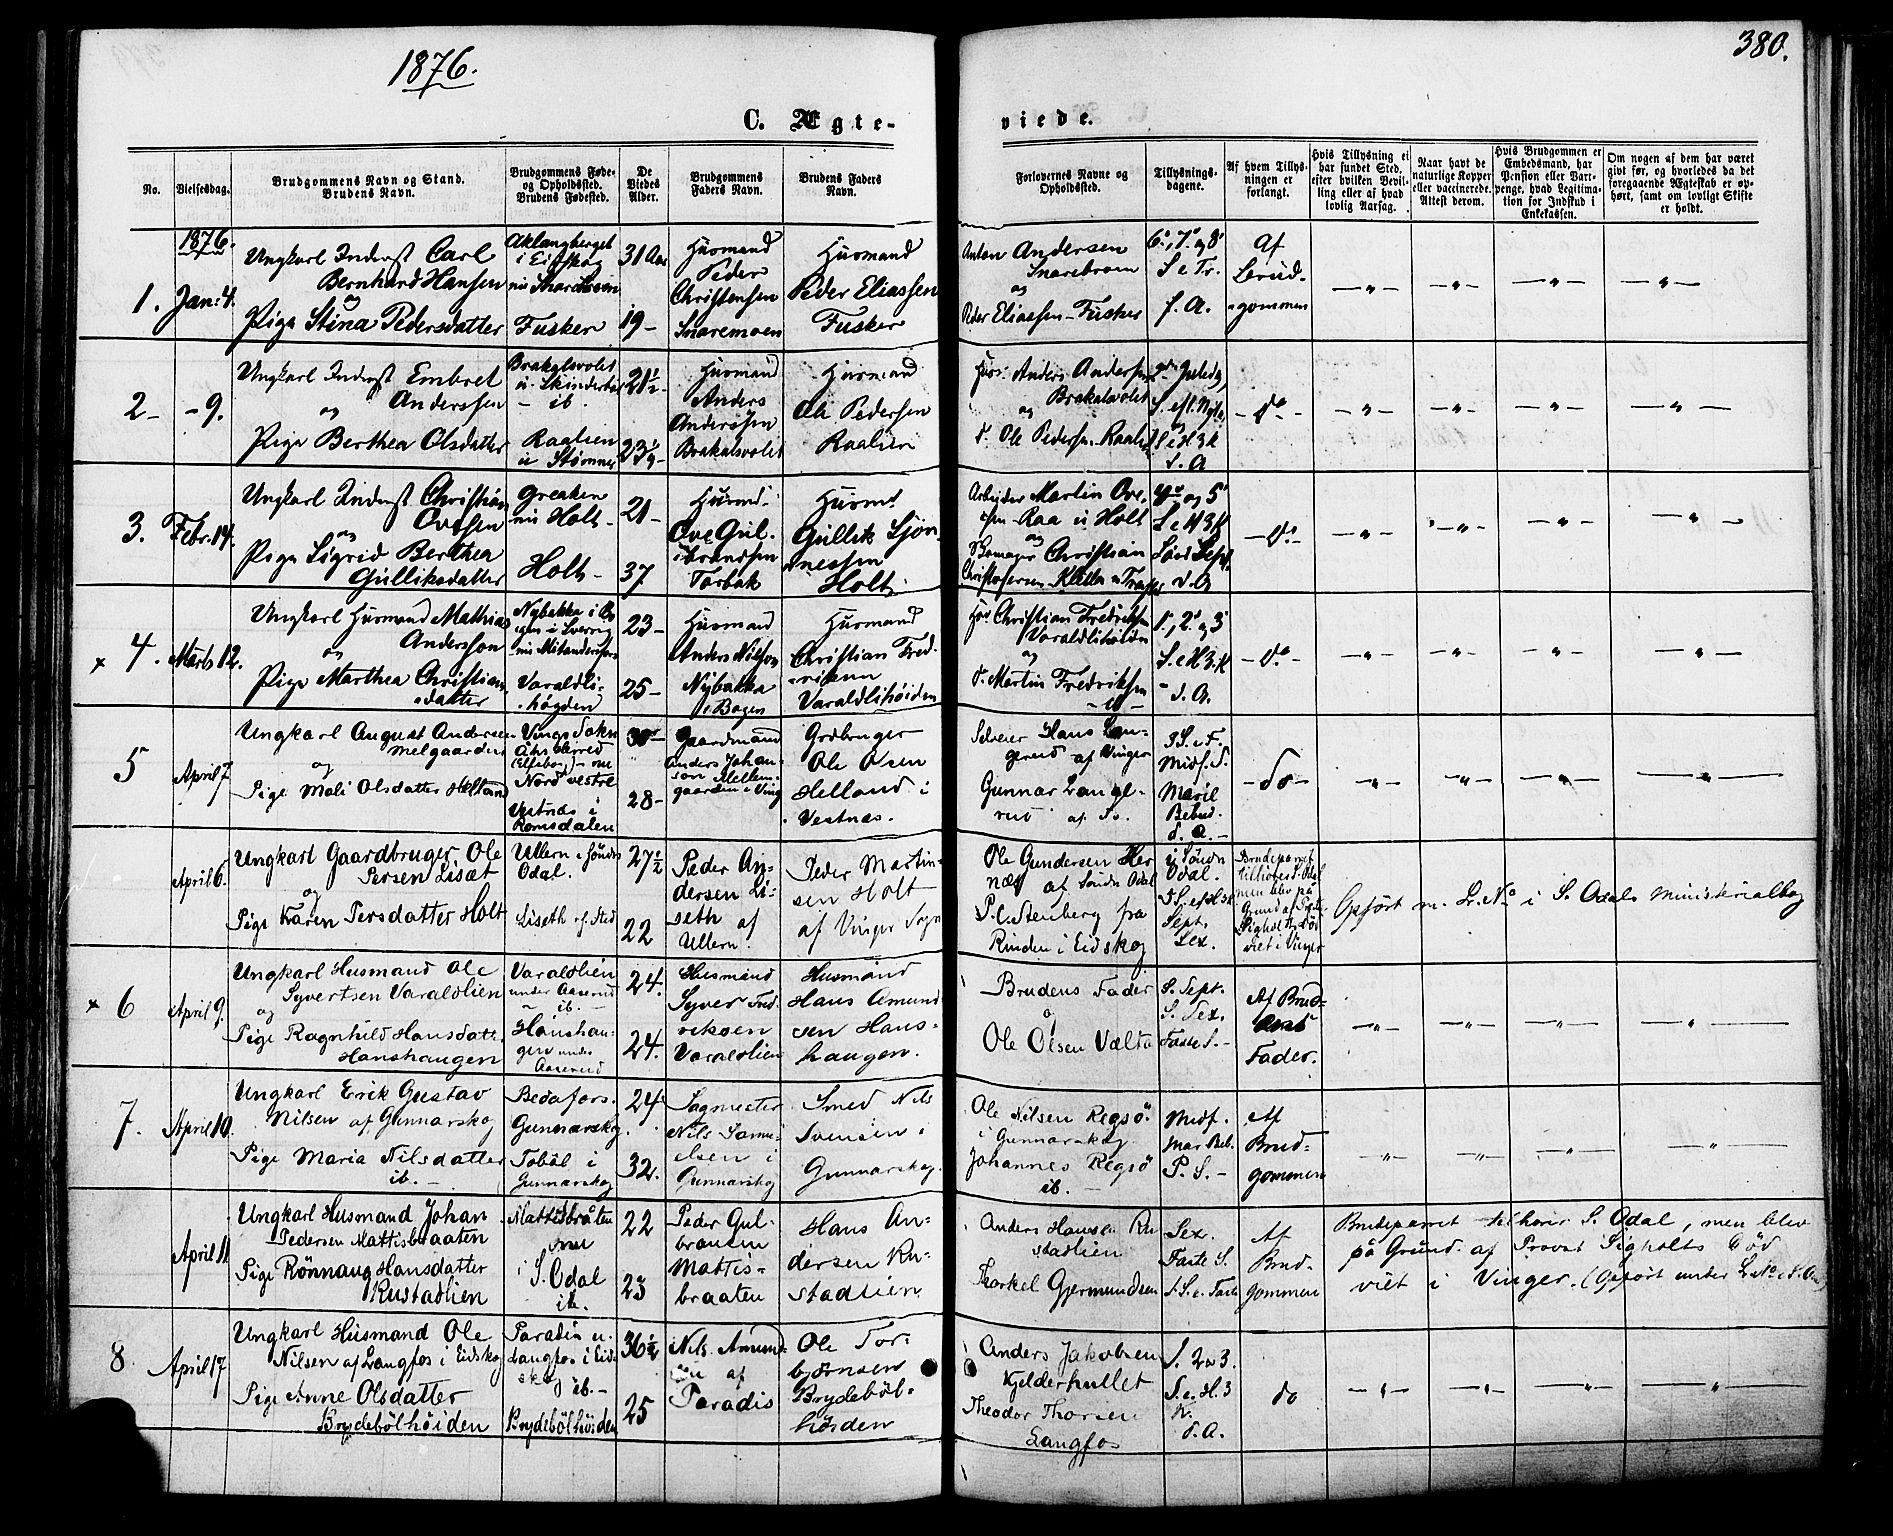 1876.
380.
C. Ægte-
viede.
No.
Vielsesdag.
Brudgommens Navn og Stand.
Brudens Navn.
Brudgommens Føde-
og Opholdssted.
Brudens Fødested.
De
Viedes
Alder.
Brudgommens
Faders Navn.
Brudens Faders
Navn.
Forlovernes Navne og
Opholdssted.
Tillysnings-
dagene.
Af hvem Tillys-
ningen er
forlangt.
Hvis Tillysning ei
har fundet Sted,
efter hvilken Bevil-
ling eller af hvad
lovlig Aarsag.
Naar havt de
naturlige Kopper
eller vaccinerede.
Attest derom.
Hvis Brudgommen er
Embedsmand, har
Pension eller Vart-
penge, hvad Legitima-
tion for Indskud i
Enkekassen.
Om nogen af dem har været
givt før, og hvorledes da det
foregaaende Ægteskab er op-
hørt, samt om lovligt Skifte
er holdt.
1876.
1. Jan: 4.
Ungkarl Inderst Carl
Bernhard Hansen
og
Pige Stina Pedersdatter
i Eidskog
Fusker
31 Aar
19 -
Husmand
Peder
Christensen
Snaremoen
Husmand
Peder Eliassen
Fusker
Anton Andersen
og
Peder Eliassen - Fusker
6', 7' og 8'
S. e Tr.
f. A.
Af
Brud-
gommen
2 - - 9.
Ungkarl Inderst Embret
og Anderssen
Pige Berthea Olsdatter
Brakalsvolet
- ib.
Raalien
u Stømner
21½
23¼
Husmand
Anders
Anderssen
Brakalsvolet
Husmand
Ole Pedersen
Raalien
Hus: Anders Andersen
og Brakalsvolet
d. Ole Pedersen Raalien
S. eft. Nytaar
S e H 3 K
d. A
- do -
3. Febr. 14.
Ungkarl Inderst Christian
og Ovesen
Pige Sigrid Berthea
Gulliksdatter
Greaken
Holt -
Holt -
21 -
37
Husmd.
Ove Gul-
brandsen
Torbak
Husmd.
Gullik Sjøn-
nesen
Holt
Arbeider Martin Ove-
sen - Raa u Holt
og
Skomager Christian
4de og 5'
S e H 3 K
d. A
- do -
x 4. Marts 12.
Ungkarl Husmand Mathias
og Andersson
Pige Marthea Christians-
datter
Varaldli-
høgden
23 -
25 -
Husmand
Anders Nilson
Nybakka
i Bogen
Husmand
Christian Fred-
riksen
Varaldlihøiden
Hus Christian Fredriksen
Varaldlihøiden
og
d. Martin Fredriksen
1', 2' og 3'
S. e H. 3. K
- d. A.
- do -
5 April 7
Ungkarl August Andersen
Melgaarden
og
Pige Mali Olsdatter Helland
Vings Sokn
Åhs Herred
(Elfsborg) - nu
Nord Vestre
Vestnæs i
Romsdalen
30
28 -
Gaardmand
Anders Johan-
son Mellem-
gaarden i Ving
Grdbruger
Ole Olsen
Helland i
Vestnæs.
Selveier Hans Lan-
gerud af Vinger
Gunnar Lange-
rud af do.
3 S. e F.
Midf. S.
Mariæ
Bebud.
d. A. -
- do -
April 6.
Ungkarl Gaardbruger Ole
Persen Lisæt
og
Pige Karen Persdatter Holt
Ullern i Søndre
Odal.
Liseth
27½
22
Peder An-
dersen Li-
seth af
Ullern.
Peder Martin-
sen Holt
af Vinger Sogn
Ole Gundersen Her-
næs af Søndre Odal
P. C. Stenberg fra
Rinden i Eidskog
i Søndre
Odal.
5 S. ef H 3 K
Sept.
Sex.
Brudeparret
tilhører S. Odal
men blev på
Grund af Provst
Sigholts Død
viet i Vinger
Opført m. L. No i S. Odals Ministerialbog
x 6 April 9.
Ungkarl Husmand Ole
Syvertsen Varaldlien
og
Pige Ragnhild Hansdatter
Hanshaugen
Varaldlien
under Aaserud
- ib. -
Hanshau-
gen under
Aaserud
24.
24.
Husmand
Syver Fred-
riksen
Varaldlien
Husmand
Hans Amund-
sen Hans-
haugen.
Brudens Fader
og
Ole Olsen Vælta
S. Sept.
S. Sex.
Faste S. -
Af Brud-
ens
Fader.
7. April 10.
Ungkarl Erik Gustav
Nilsen af Gunnarskog
Pige Maria Nilsdatter
ib. -
Bedafors.
Gunnarskog.
Tobøl i
Gunnarskog
24
32.
Sagmester
Nils Samu-
elsen i
Gunnarskog
Smed Nils
Svensen i
Gunnarskog.
Ole Nilsen Regsö
i Gunnarskog.
Johannes Regsö
ib. -
Midf.
Mar Beb.
P. S. -
Af
Brud-
gommen
April 11
Ungkarl Husmand Johan
Pedersen Mattisbraaten
Pige Rönnaug Hansdatter
Rustadlien
Mattisbråten
i S. Odal
ib.
22
23
Peder Gul-
bransen
Mattis-
braaten
Hans An-
dersen Ru-
stadlien
Anders Hansen Ru-
stadlien
Thorkel Gjermundsen
Sex.
Faste S.
1 S. i Faste
Af
Brud-
gommen
Brudeparret tilhører S. Odal, men blev
på Grund af Provst Sigholts Död
viet i Vinger. (Opført under L. No i S. Odal)
8 April 17
Ungkarl Husmand Ole
Nilsen af Langfos i Eidskog
Pige Anne Olsdatter
Brydebölhöiden
Paradis u.
Langfos i Eid-
skog ib. -
Brydebölhöiden
36½
25
Nils Amund-
sen af
Paradis
Ole Tor-
bjørnsen
Brydeböl-
höiden
Anders Jakobsen
Kjelderhullet
Theodor Thorsen
Langfos
S. 2 & 3.
S. e. H. 3
K.
d. A.
do